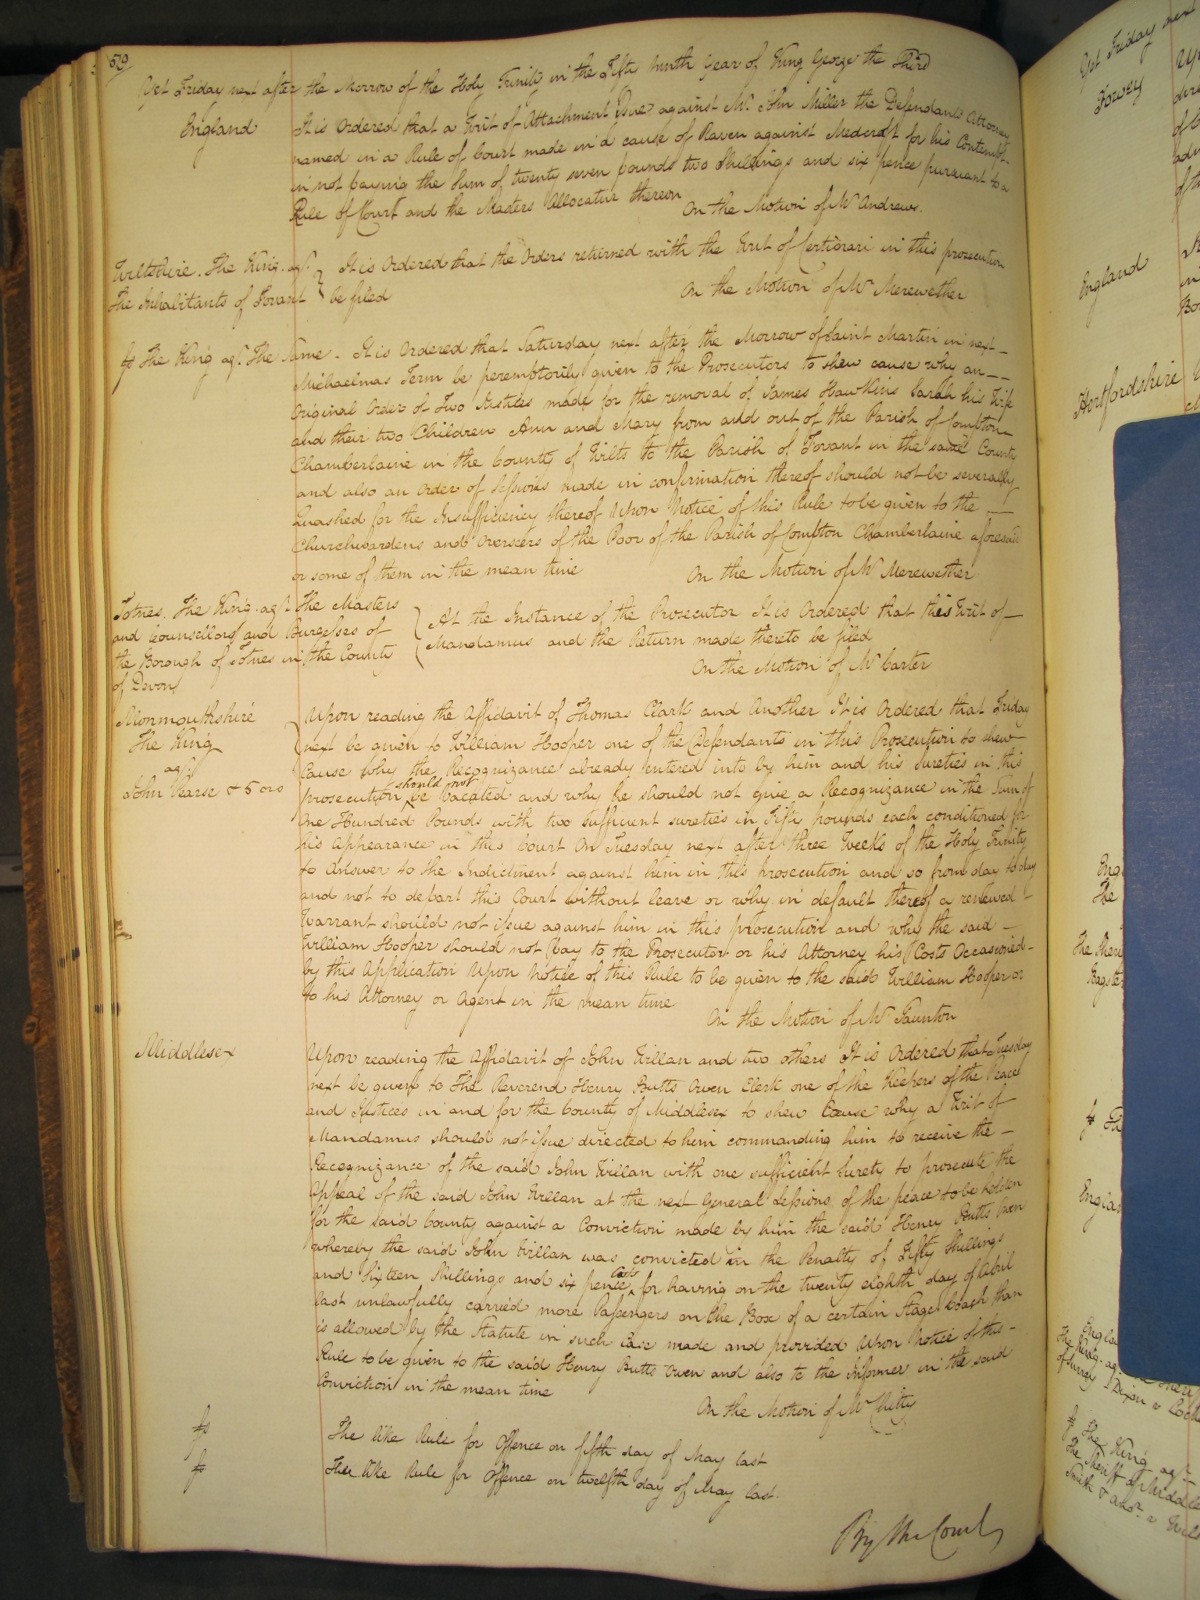 59
Yet Friday next after the Morrow of the Holy Trinity in the Fifty ninth Year of King George the Third
England It is Ordered that a Writ of Attachment Issue against Mr. John Miller the Defendants Attorney
named in a Rule of Court made in a cause of Raven against Medcraft for his Contempt
in not paying the Sum of twenty seven pounds two Shillings and six pence pursuant to a
Rule of Court and the Masters Allocatur thereon
On the Motion of Mr Andrews.
Wiltshire. The King agt. It is Ordered that the Orders returned with the Writ of Certiorari in this prosecution
The Inhabitants of Fovant be filed
On the Motion of Mr Merewether
The King agt. The Same. It is Ordered that Saturday next after the Morrow of Saint Martin in next
Michaelmas Term be peremptorily given to the Prosecutors to shew cause why an
Original Order of Two Justices made for the removal of James Hawkins Sarah his Wife
and their two Children Ann and Mary from and out of the Parish of Compton
Chamberlaine in the County of Wilts to the Parish of Fovant in the same County
and also an Order of Sessions made in confirmation thereof should not be severally
Quashed for the Insufficiency thereof Upon Notice of this Rule to be given to the
Churchwardens and Overseers of the Poor of the Parish of Compton Chamberlaine aforesaid
or some of them in the mean time
On the Motion of Mr Merewether
Totnes. The King agt. The Masters
and Counsellors and Burgesses of
the Borough of Totnes in the County
of Devon
At the Instance of the Prosecutor It is Ordered that this Writ of
Mandamus and the Return made thereto be filed
On the Motion of Mr Carter
Monmouthshire
The King
agt
John Pearse & 5 ors
Upon reading the Affidavit of Thomas Clark and Another It is Ordered that Friday
next be given to William Hooper one of the Defendants in this Prosecution to shew
Cause why the Recognizance already entered into by him and his sureties in this
prosecution should not be vacated and why he should not give a Recognizance in the Sum of
One Hundred Pounds with two sufficient sureties in Fifty pounds each conditioned for
his appearance in this Court On Tuesday next after three Weeks of the Holy Trinity
to Answer to the Indictment against him in this prosecution and so from day to day
and not to depart this Court without leave or why in default thereof a renewed
Warrant should not issue against him in this prosecution and why the said
William Hooper should not Pay to the Prosecutor or his Attorney his Costs Occasioned
by this Application Upon Notice of this Rule to be given to the said William Hooper or
to his Attorney or Agent in the mean time
On the Motion of Mr Taunton
Middlesex Upon reading the Affidavit of John Willan and two others It is Ordered that Tuesday
next be given to The Reverend Henry Butts Owen Clerk one of the Keepers of the Peace
and Justices in and for the County of Middlesex to shew Cause why a Writ of
Mandamus should not issue directed to him commanding him to receive the
Recognizance of the said John Willan with one sufficient Surety to prosecute the
Appeal of the said John Willan at the next General Sessions of the peace to be holden
for the said County against a Conviction made by him the said Henry Butts Owen
whereby the said John Willan was convicted in the Penalty of Fifty Shillings
and Sixteen Shillings and six pence Costs for having on the twenty eighth day of April
last unlawfully carried more Passengers on the Box of a certain Stage Coach than
is allowed by the Statute in such Case made and provided Upon Notice of this
Rule to be given to the said Henry Butts Owen and also to the Informer in the said
Conviction in the mean time
On the Motion of Mr Chitty
The like Rule for Offence on fifth day of May last
The like Rule for Offence on twelfth day of May last.
By the Court
Yet Friday next
Fowey
England
Hertfordshire